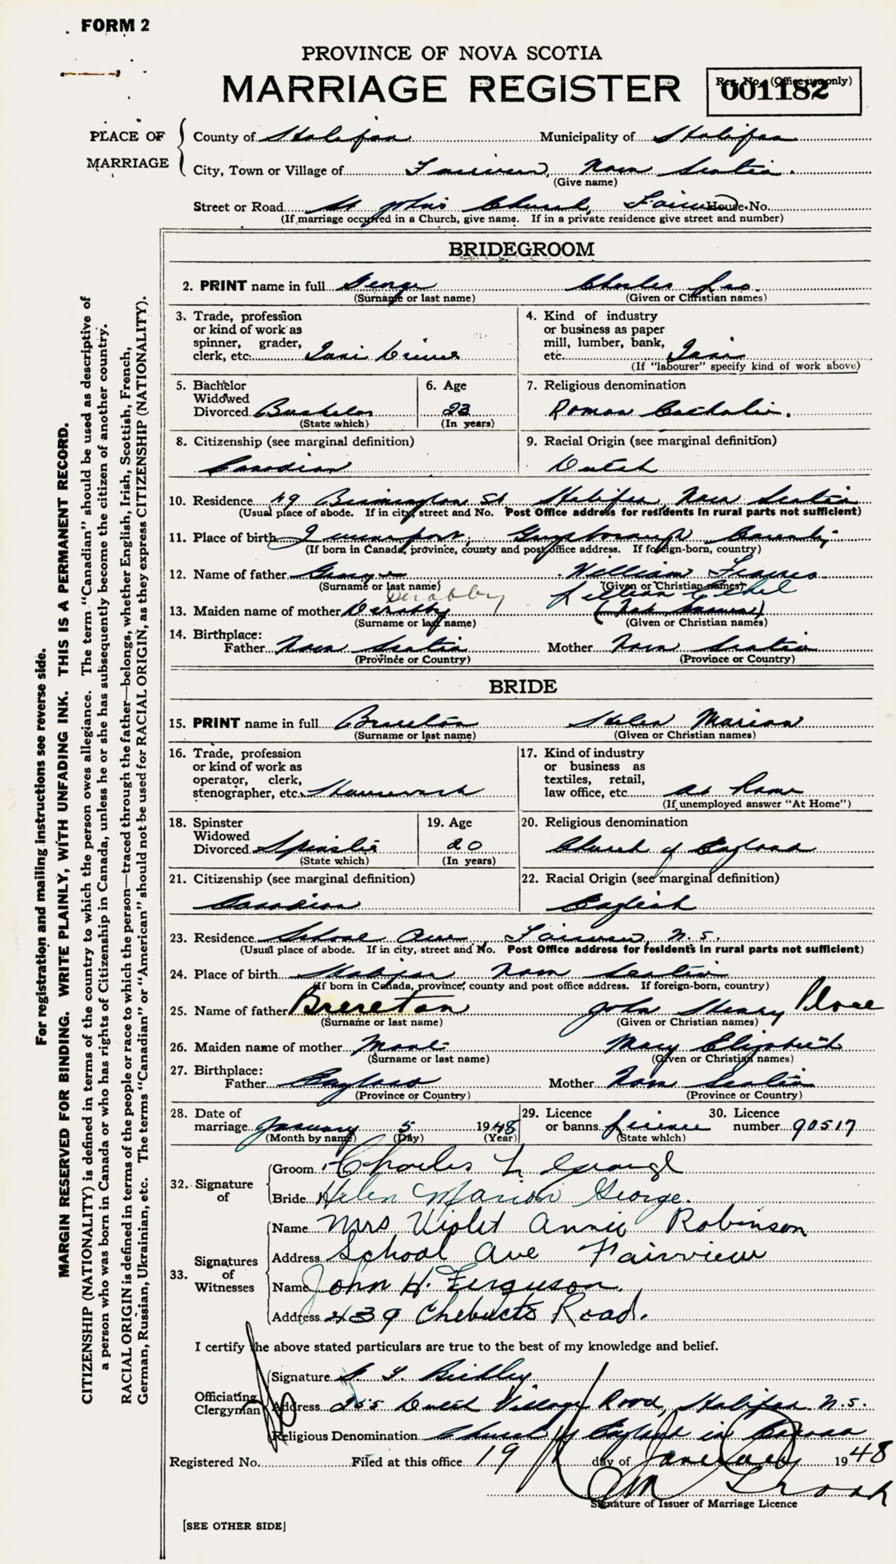 FORM 2
PROVINCE OF NOVA SCOTIA
MARRIAGE REGISTER
Reg. No. (Office use only)
001182
PLACE OF MARRIAGE
County of Halifax Municipality of Halifax
City, Town or Village of Fairview, Nova Scotia
(Give name)
Street or Road St John's Church, Fairview House No.
(If marriage occurred in a Church, give name. If in a private residence give street and number)
BRIDEGROOM
2. PRINT name in full George Charles Leo
(Surname or last name) (Given or Christian names)
3. Trade, profession or kind of work as spinner, grader, clerk, etc. Taxi Driver
4. Kind of industry or business as paper mill, lumber, bank, etc. Taxi
(If "labourer" specify kind of work above)
5. Bachelor Widowed Divorced Bachelor
(State which)
6. Age 23
(In years)
7. Religious denomination
Roman Catholic.
8. Citizenship (see marginal definition)
Canadian
9. Racial Origin (see marginal definition)
Dutch
10. Residence 49 Birmingham St Halifax Nova Scotia
(Usual place of abode. If in city street and No. Post Office address for residents in rural parts not sufficient)
11. Place of birth Guysborough County
(If born in Canada, province, county and post office address. If foreign-born, country)
12. Name of father George William Francis
(Surname or last name) (Given or Christian names)
Lillian Ethel
13. Maiden name of mother
(Surname or last name) (Given or Christian names)
14. Birthplace:
Father Nova Scotia Mother Nova Scotia
(Province or Country) (Province or Country)
BRIDE
15. PRINT name in full Brereton Helen Marion
(Surname or last name) (Given or Christian names)
16. Trade, profession or kind of work as operator, clerk, stenographer, etc. Housework
17. Kind of industry or business as textiles, retail, law office, etc. at Home
(If unemployed answer "At Home")
18. Spinster Widowed Divorced Spinster
(State which)
19. Age 20
(In years)
20. Religious denomination
Church of England
21. Citizenship (see marginal definition)
Canadian
22. Racial Origin (see marginal definition)
English
23. Residence School Ave Fairview N.S.
(Usual place of abode. If in city, street and No. Post Office address for residents in rural parts not sufficient)
24. Place of birth Halifax Nova Scotia
(If born in Canada, province, county and post office address. If foreign-born, country)
25. Name of father Brereton John Henry
(Surname or last name) (Given or Christian names)
26. Maiden name of mother Mary Elizabeth
(Surname or last name) (Given or Christian names)
27. Birthplace:
Father England Mother Nova Scotia
(Province or Country) (Province or Country)
28. Date of marriage January 5 1948
(Month by name) (Day) (Year)
29. Licence or banns License
(State which)
30. Licence number 90517
32. Signature of
Groom Charles L George
Bride Helen Marion George.
33. Signatures of Witnesses
Name Mrs Violet Annie Robinson
Address School Ave Fairview
Name John H. Ferguson
Address 239 Chebucto Road.
I certify the above stated particulars are true to the best of my knowledge and belief.
Officiating Clergyman
Signature
Address 255 Dutch Village Road, Halifax N.S.
Religious Denomination Church of England in Canada
Registered No. Filed at this office 19 day of January 1948
Signature of Issuer of Marriage Licence
[SEE OTHER SIDE]
For registration and mailing instructions see reverse side.
MARGIN RESERVED FOR BINDING. WRITE PLAINLY, WITH UNFADING INK. THIS IS A PERMANENT RECORD.
CITIZENSHIP (NATIONALITY) is defined in terms of the country to which the person owes allegiance. The term "Canadian" should be used as descriptive of
a person who was born in Canada or who has rights of Citizenship in Canada, unless he or she has subsequently become the citizen of another country.
RACIAL ORIGIN is defined in terms of the people or race to which the person—traced through the father—belongs, whether English, Irish, Scottish, French,
German, Russian, Ukrainian, etc. The terms "Canadian" or "American" should not be used for RACIAL ORIGIN, as they express CITIZENSHIP (NATIONALITY).